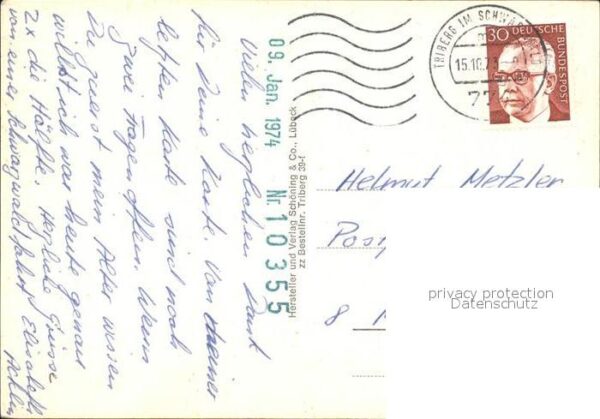 Vielen herzlichen Dank
für Deine Karte. Von meiner
letzten Karte sind noch
zwei Fragen offen. Wenn
Du zuerst mein Alter wissen
willst, ich war heute genau
2x die Hälfte. Herzliche Grüsse
von einer Schwarzwaldfahrt Elisabeth
09. Jan. 1974 Nr. 10355
Hersteller und Verlag Schöning & Co., Lübeck
zz Bestellnr. Triberg 39-f
TRIBERG IM SCHWARZ
15.10.73
77
30 DEUTSCHE BUNDESPOST
Helmut Metzler
Pos
8
privacy protection
Datenschutz